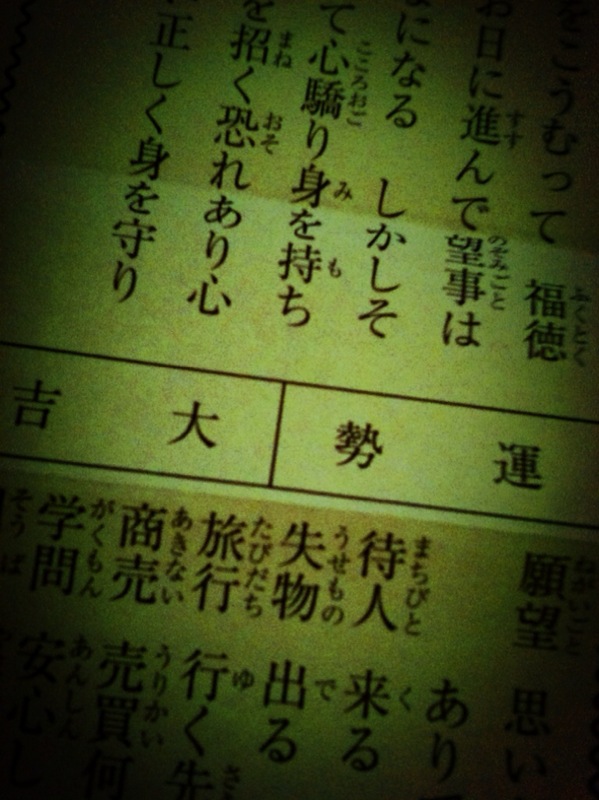 をこうむって 福徳
お日に進んで望事は
になる しかしそ
て心驕り身を持ち
を招く恐れあり心
正しく身を守り
運勢 大吉
願望 思い
あり
待人 来る
失物 出る
旅行 行く先
商売 売買何
学問 安心し